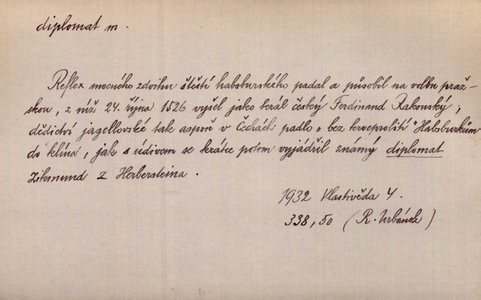 diplomat m.
Reflex mocného zdvihu štěstí habsburského padal a působil na volbu praž-
skou, z níž 24. října 1526 vyšel jako král český Ferdinand Rakouský;
dědictví jagellovské tak aspoň v Čechách padlo „bez krveprolití" Habsburkům
do klína, jak s údivem se krátce potom vyjádřil známý diplomat
Zikmund z Herbersteina.
1932 Vlastivěda 4.
338, 50 (R. Urbánek)